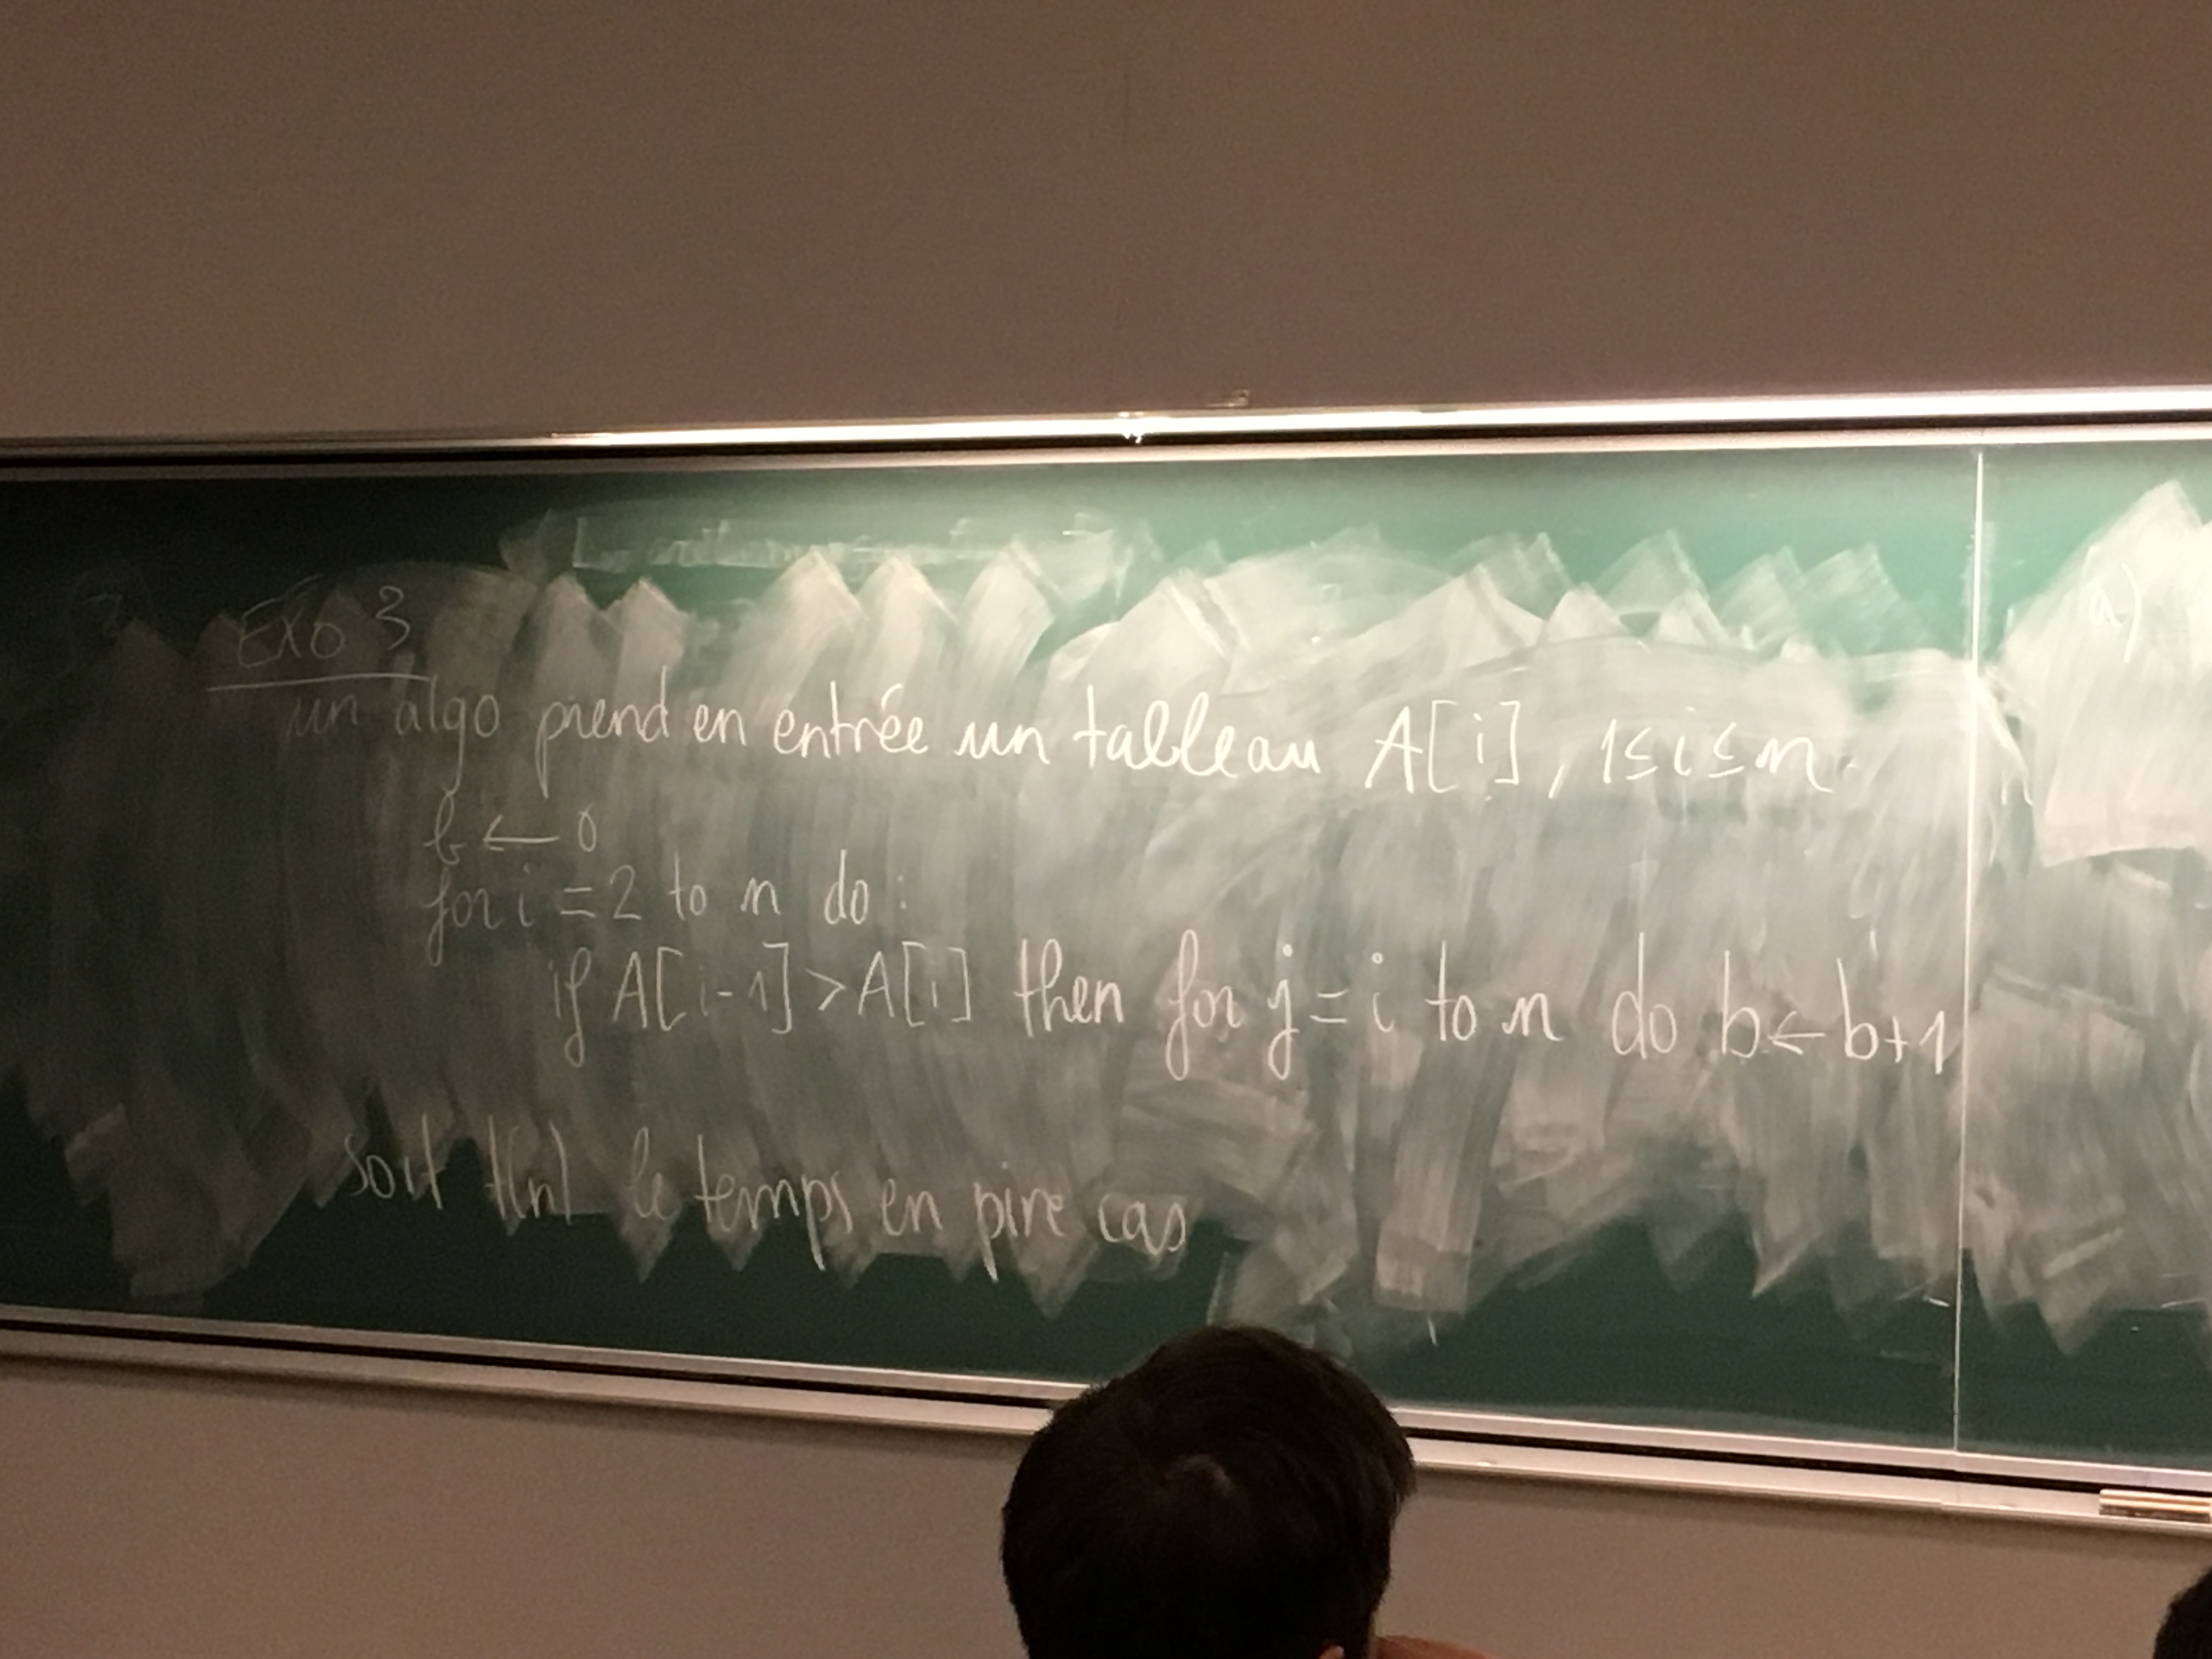 Exo 3
un algo prend en entrée un tableau A[i], 1≤i≤n.
b ← 0
for i = 2 to n do :
if A[i-1] > A[i] then for j = i to n do b ← b+1
soit t(n) le temps en pire cas
a)